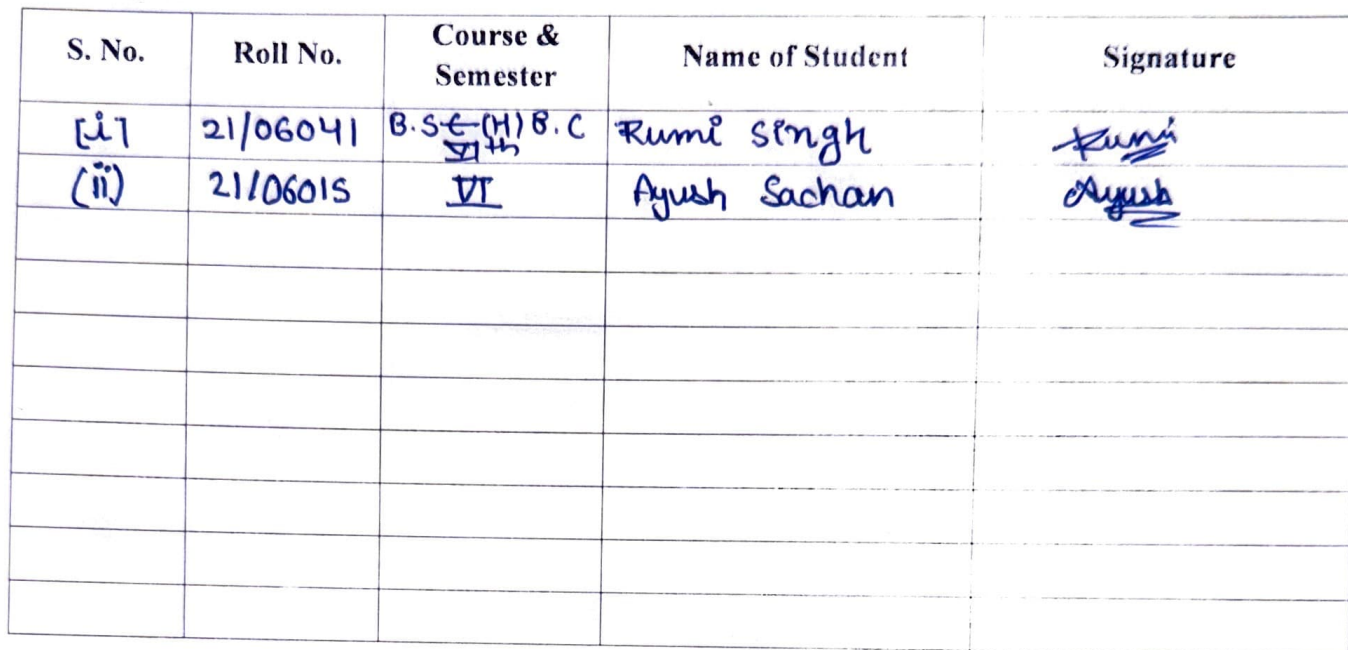 S. No. Roll No. Course & Semester Name of Student Signature
[i] 21/06041 B.Sc (H) B.C VIth Rumi Singh Rumi
(ii) 21/06015 VI Ayush Sachan Ayush